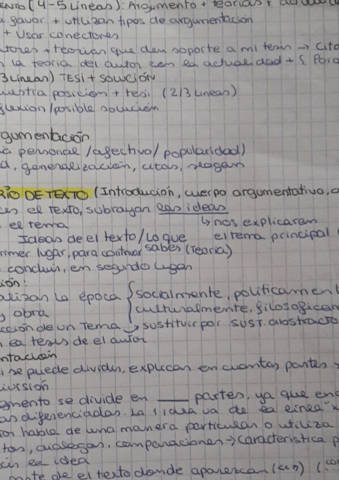 (4-5 Líneas): Argumento + teorías +
favor + utilizan tipos de argumentación
+ Usar conectores
tores + teorías que den soporte a mi tesis → Cita
la teoría del autor con la actualidad +
3 Líneas) TESI + solución
uestra posición + tesi. (2/3 Lineas)
flexion/posible solución
gumentación
personal /afectivo/ popularidad)
generalización, citas, slogan
RIO DE TEXTO (Introducion, cuerpo argumentativo,
el texto, subrayan las ideas
el tema ↳ nos explicaran
Ideas de el texto/Lo que el tema principal
rimer lugar, para continar saber (Teoría)
concluir, en segundo lugar
ión:
alizan la época { socialmente, politicament
y obra culturalmente, filosofican
cción de un Tema → sustituir por SUST. abstracto
la tesis de el autor
ntación
se puede dividir, explican en cuantas partes y
uisión
gmento se divide en ___ partes, ya que
as diferenciadas. La 1 idea va de la línea "x
habla de una manera particular o utiliza
tos, analogas, comparaciones → caracteristica
idea
parte de el texto donde aparezcan (ccn)